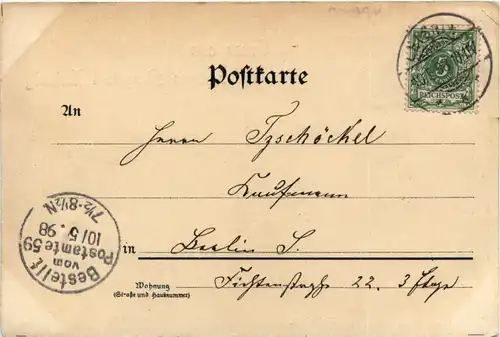 Postkarte
5
REICHSPOST
An
Herrn Tzschöckel
Kaufmann
in Berlin S.
Wohnung
(Straße und Hausnummer)
22. 3 Etage
Bestellt
vom
Postamte 59
10/5. 98
7½-8½N